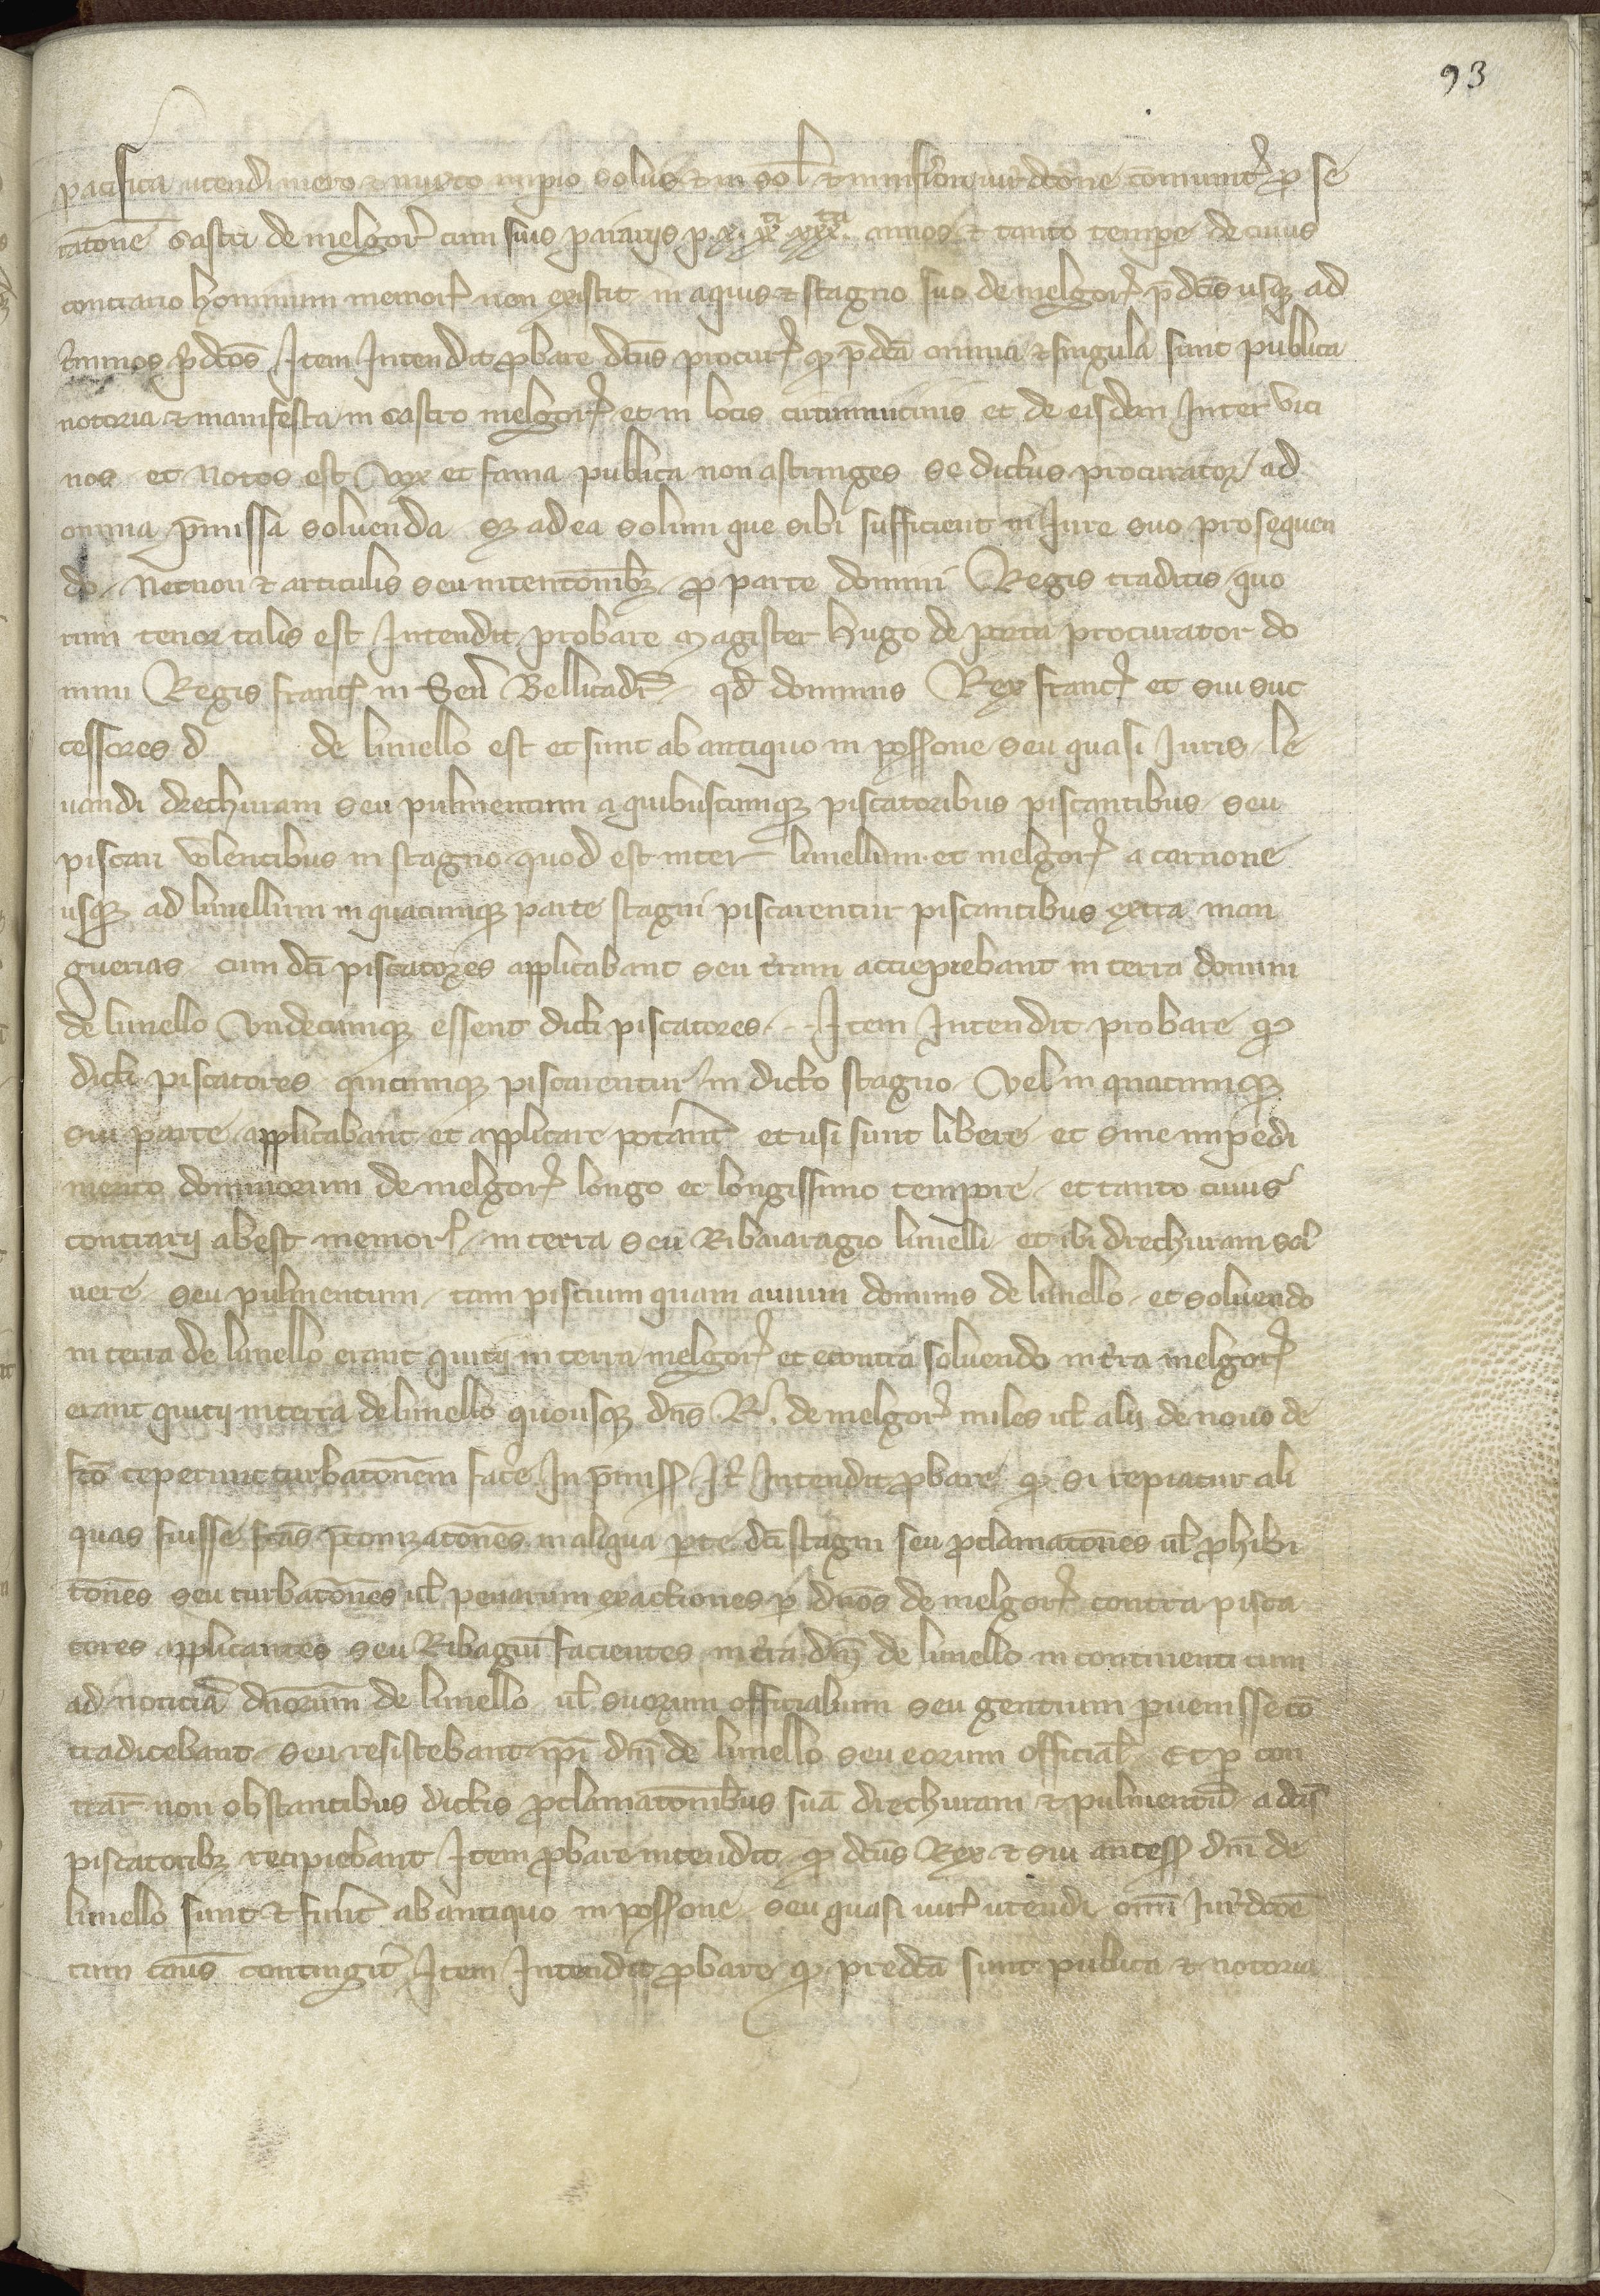 93
pacifica utendi mero & mixto impio solus & in sol & inferiori iurdcōne cōmunitʼ p se
tatōne castri de melgorʼ cum suis pariariis p x. xxti xxxta annos & tanto tempe de cuius
contrario hominum memorʼ non existit in aquis & stagno suo de melgorʼ p̄dcīs usqz ad
tʼminos p̄dcōs Item Intendit pbare dcūs procurʼ qp p̄dcā omnia & singula sunt publica
notoria & manifesta in castro melgorʼ et in locis circumuicinis et de eisdem Inter vici
nos et notos est vox et fama publica non astringēs se dictus procurator ad
omnia p̄missa soluenda sz ad ea solum que sibi sufficient in Iure suo prosequen
do Necnon & articulis seu intentōnibz p parte domini Regis traditis quo
rum tenor talis est Intendit probare magister hugo de porta procurator do
mini Regis francʼ in Senʼ Bellicadrʼ qd dominus Rex francʼ et sui suc
cessores d de lunello est et sunt ab antiquo in possone seu quasi Iuris le
uandi drechuram seu pulmentum a quibuscumqz piscatoribus piscantibus seu
piscari volentibus in stagno quod est inter lunellum et melgorʼ a carnone
usqz ad lunellum in quacumqz parte stagni piscarentur piscantibus extra man
guerias cum dcī piscatores applicabant seu tʼram accipiebant in terra domini
de lunello vndecumqz essent dicti piscatores Item Intendit probare qp
dicti piscatores quicumqz piscarentur in dicto stagno vel in quacumqz
sui parte applicabant et applicare potʼant et usi sunt libere et sine impedi
mento dominorum de melgorʼ longo et longissimo tempore et tanto cuius
contrarii abest memorʼ in terra seu Ribaiaragio lunelli et ibi drechuram sol
uere seu pulmentum tam piscium quam auium dominis de lunello et soluendo
in terra de lunello erant quitii in terra melgorʼ et econtra soluendo in tʼra melgorʼ
erant quitii in terra de lunello quousqz dns R. de melgorʼ miles ul alii de nouo de
fcō ceperunt turbatōnem facʼe In p̄missʼ Itʼ Intendit pbare qp si repiatur ali
quas fuisse fcās p̄conizatōnes in aliqua pte dcī stagni seu pclamatōnes ul phibi
tōnes seu turbatōnes ul penarum exactiones p dnōs de melgorʼ contra pisca
tores applicantes seu Ribagiū facientes in tʼra dnī de lunello in continenti cum
ad noticiā dnōrum de lunello ul suorum officialium seu gentium puenisse cō
tradicebant seu resistebant ipī dnī de lunello seu eorum official Et p con
trar non obstantibus dictis pclamatōnibus suā drechuram & pulmentū a dcīs
piscatoribz recipiebant Item pbare intendit qp dcūs Rex & sui antecessʼ dnī de
lunello sunt & fuerʼt ab antiquo in possone seu quasi iurʼ utendi omī Iurʼdcōe
cum cāus contingit Item Intendit pbare qp predcā sunt publica & notoria